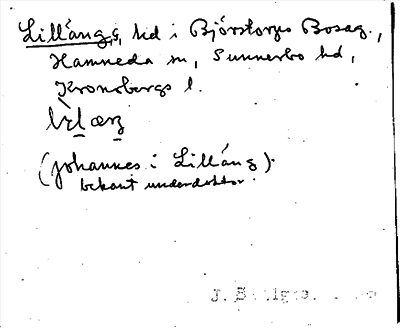 Lillängs, hd i Bjórstorps Bosag.,
Hamneda sn, Sunnerbo hd,
Kronobergs l.
(Johannes i Lilläng).
bekant underdoktor.